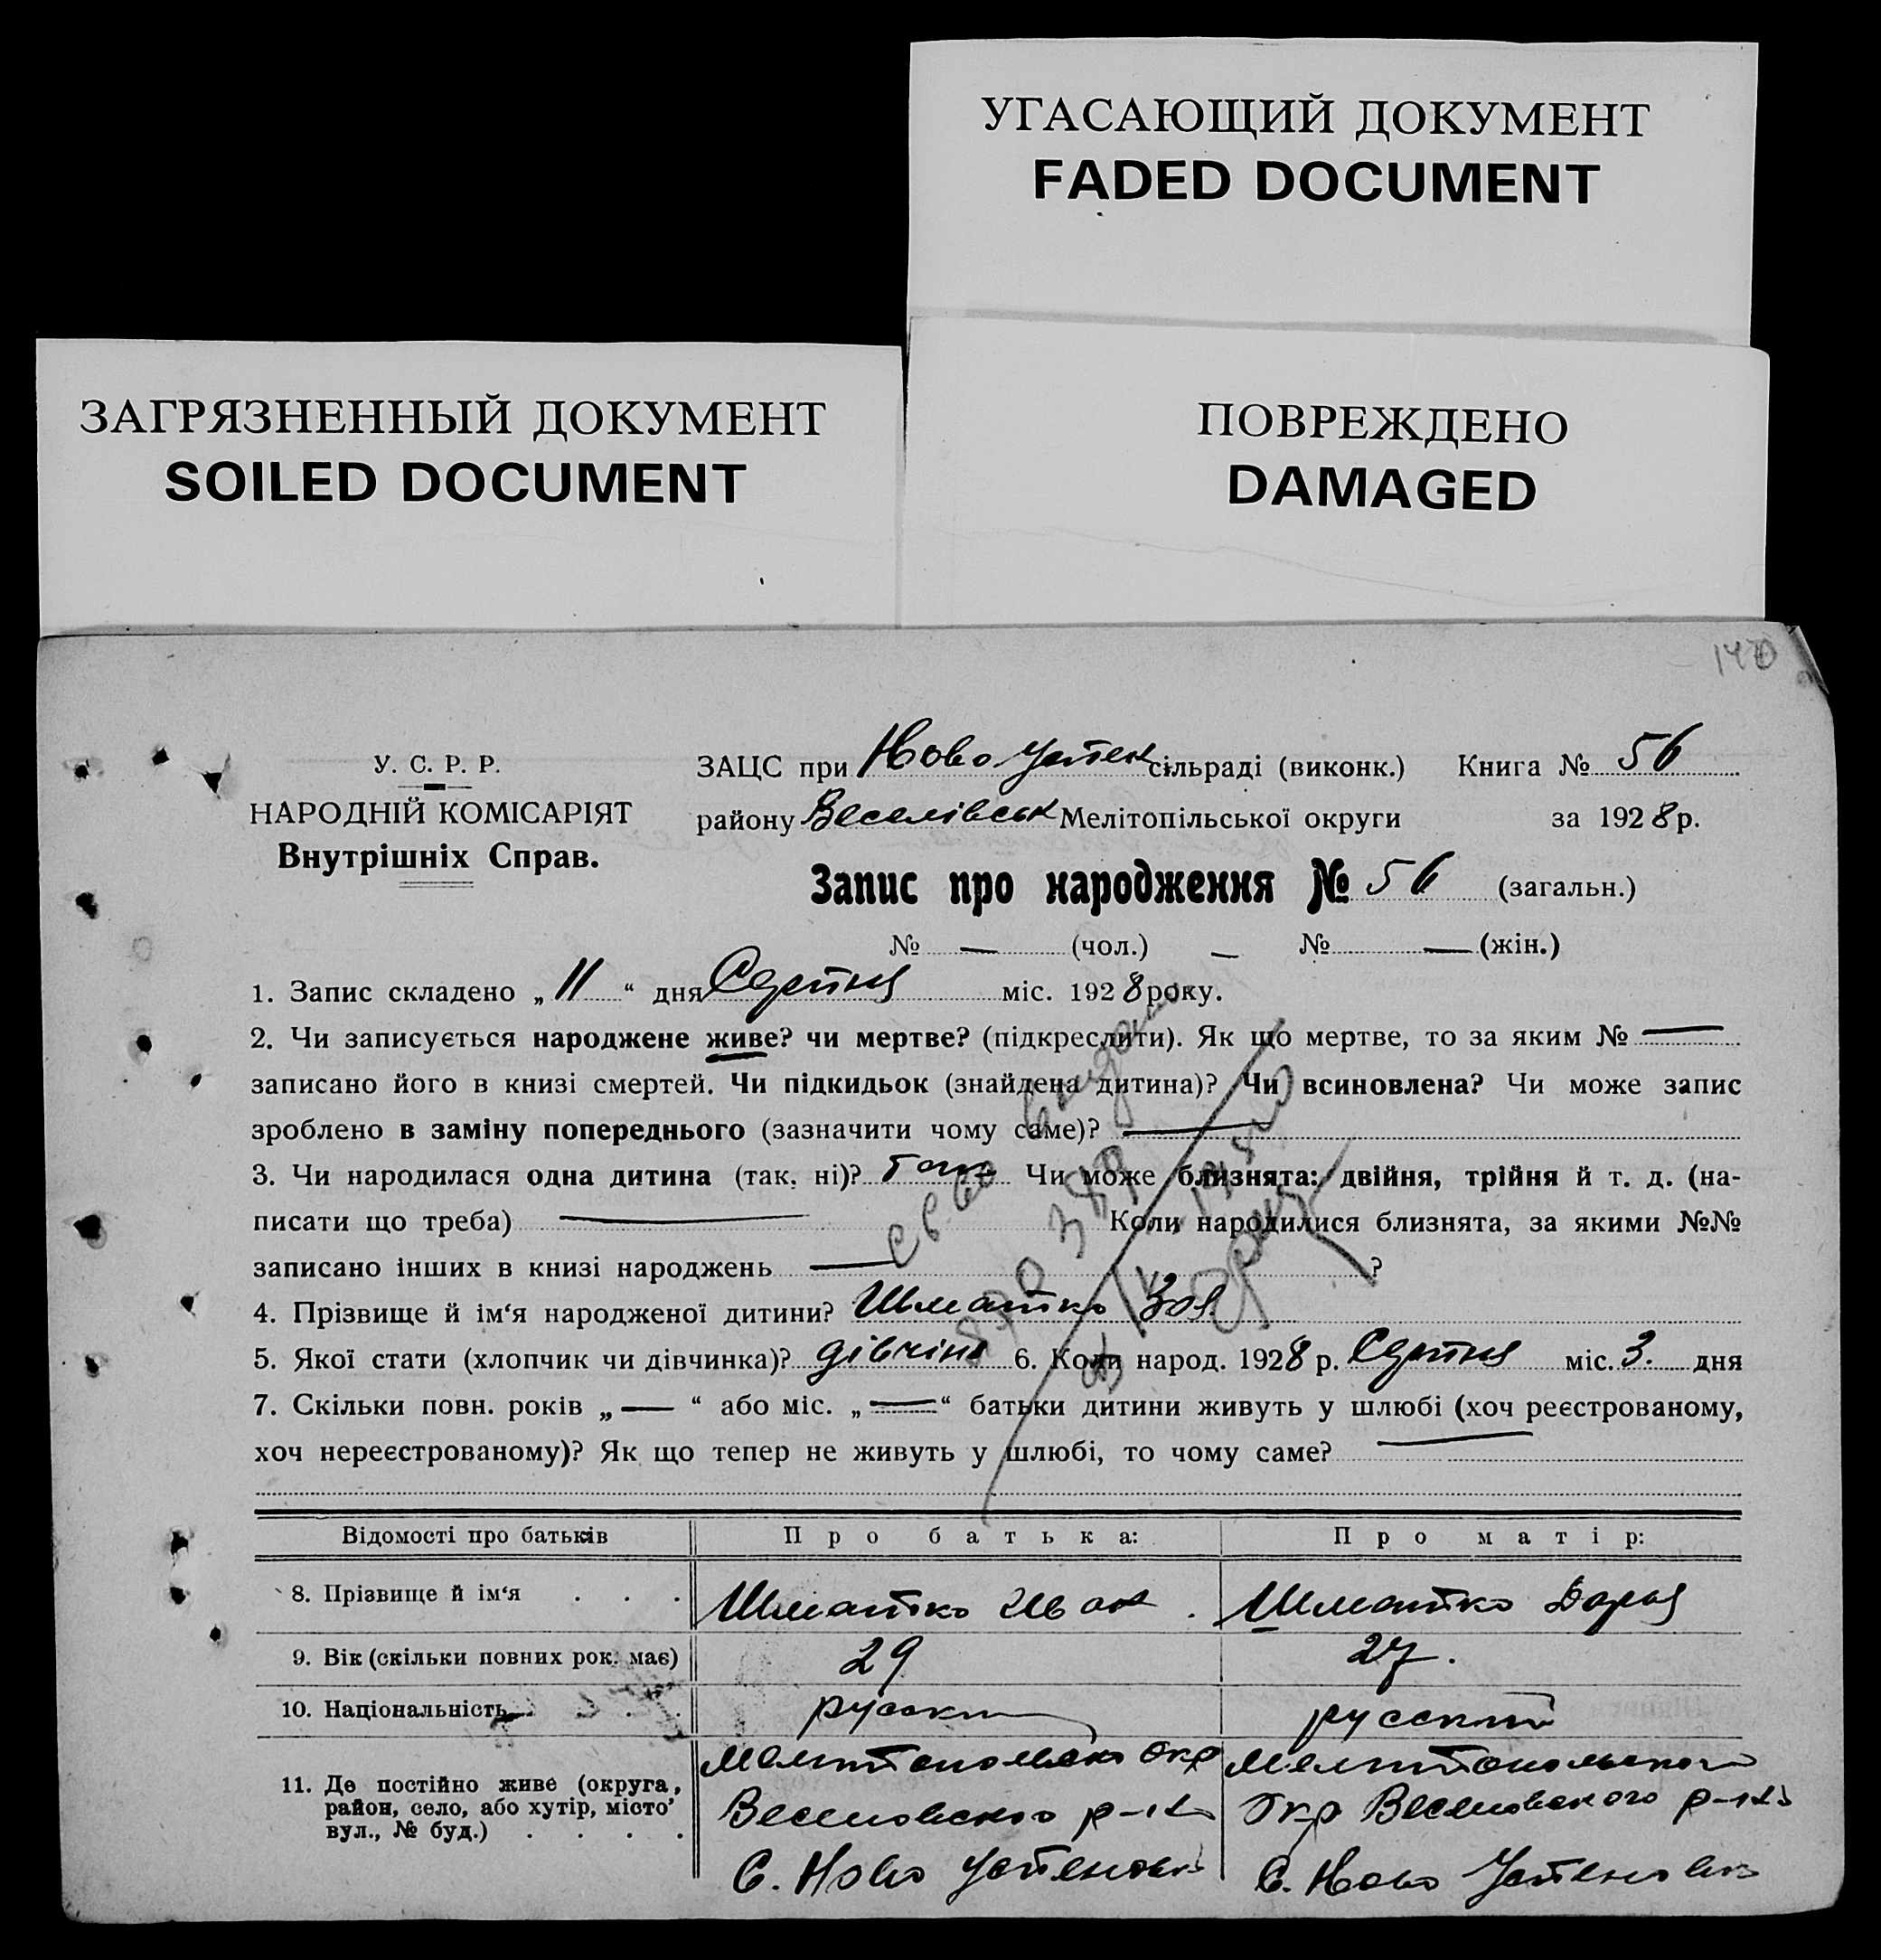 УГАСАЮЩИЙ ДОКУМЕНТ
FADED DOCUMENT
ЗАГРЯЗНЕННЫЙ ДОКУМЕНТ
SOILED DOCUMENT
ПОВРЕЖДЕНО
DAMAGED
У. С. Р. Р.
НАРОДНІЙ КОМІСАРІЯТ
Внутрішніх Справ.
ЗАЦС при Ново сільраді (виконк.) Книга № 56
району Веселівськ Мелітопільської округи за 1928 р.
Запис про народження № 56 (загальн.)
№ — (чол.) — № — (жін.)
1. Запис складено „11“ дня Серпня міс. 1928 року.
2. Чи записується народжене живе? чи мертве? (підкреслити). Як що мертве, то за яким № —
записано його в книзі смертей. Чи підкидьок (знайдена дитина)? Чи всиновлена? Чи може запис
зроблено в заміну попереднього (зазначити чому саме)? —
3. Чи народилася одна дитина (так, ні)? Так Чи може близнята: двійня, трійня й т. д. (на-
писати що треба) — Коли народилися близнята, за якими №№
записано інших в книзі народжень — ?
4. Прізвище й ім‘я народженої дитини? Шматко Зоя
5. Якої стати (хлопчик чи дівчинка)? 6. Коли народ. 1928 р. Серпня міс. 3. дня
7. Скільки повн. років „—“ або міс. „—“ батьки дитини живуть у шлюбі (хоч реєстрованому,
хоч нереєстрованому)? Як що тепер не живуть у шлюбі, то чому саме? —
Відомості про батьків Про батька: Про матір:
8. Прізвище й ім‘я . . . Шматко Иван. Шматко Дарья
9. Вік (скільки повних рок. має) 29 27.
10. Національність русский русский
11. Де постійно живе (округа,
район, село, або хутір, місто‘
вул., № буд.) . . . .
Мелитопольско Окр
Веселовского р-на
С. Ново
Мелитопольского
Окр Веселовского р-на
С. Ново